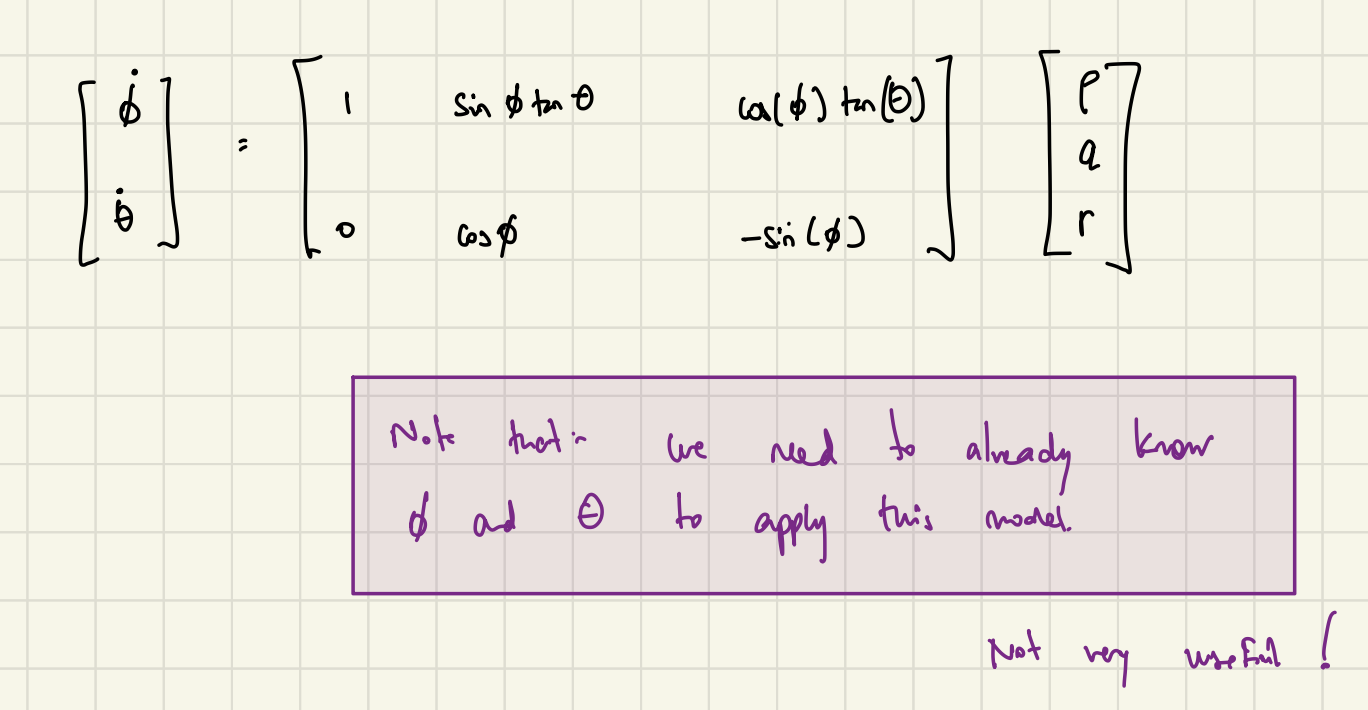 [ϕ̇ θ̇] = [1 sin ϕ tan θ cos(ϕ) tan(θ) 0 cos ϕ -sin(ϕ)] [p q r]
Note that:- we need to already know
ϕ and θ to apply this model.
Not very useful !